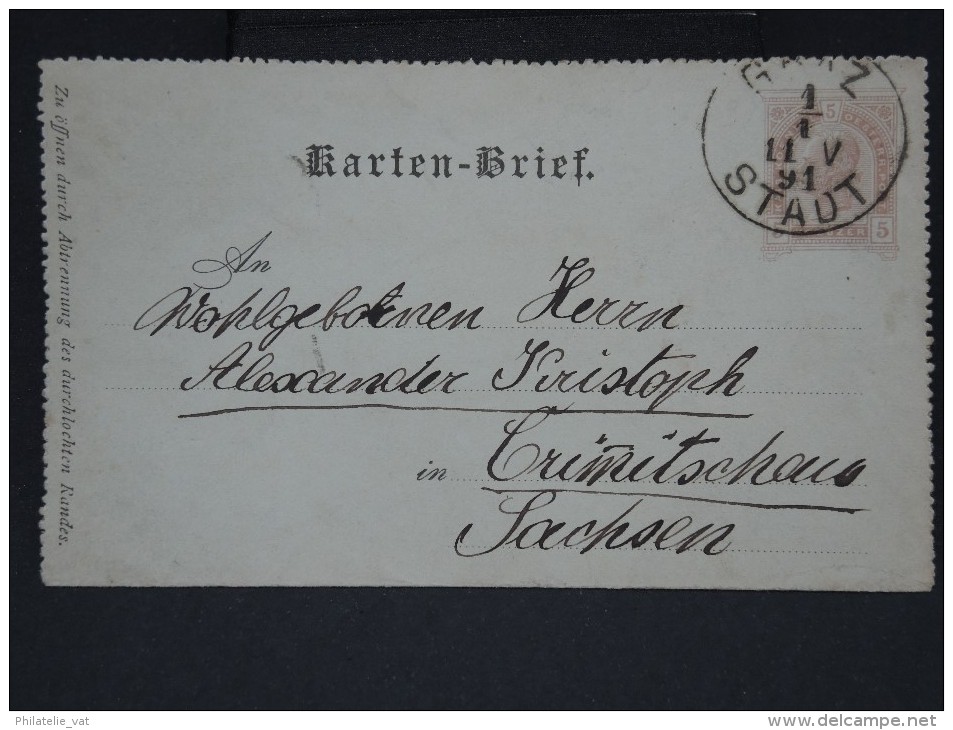 Karten-Brief.
GRAZ
1
1
11 V
91
STADT
5
5
An
Wohlgebornen Herrn
Alexander Kristoph
in Crimmitschau
Sachsen
Zu öffnen durch Abtrennung des durchlochten Randes.
Philatelie_vat
delcampe.net